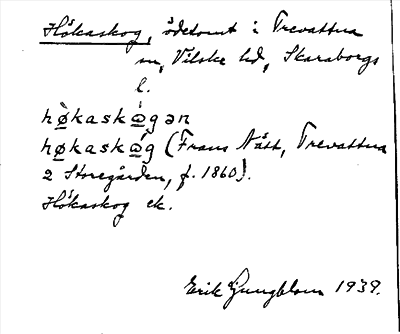 Hökaskog, ödetomt i Trevattna
sn, Vilske hd, Skaraborgs
l.
hø̀kaskɷ̀gən
høkaskɷ́g (Frans Nätt, Trevattna
2 Storegården, f. 1860).
Hökaskog ek.
Erik Ljungblom 1939.